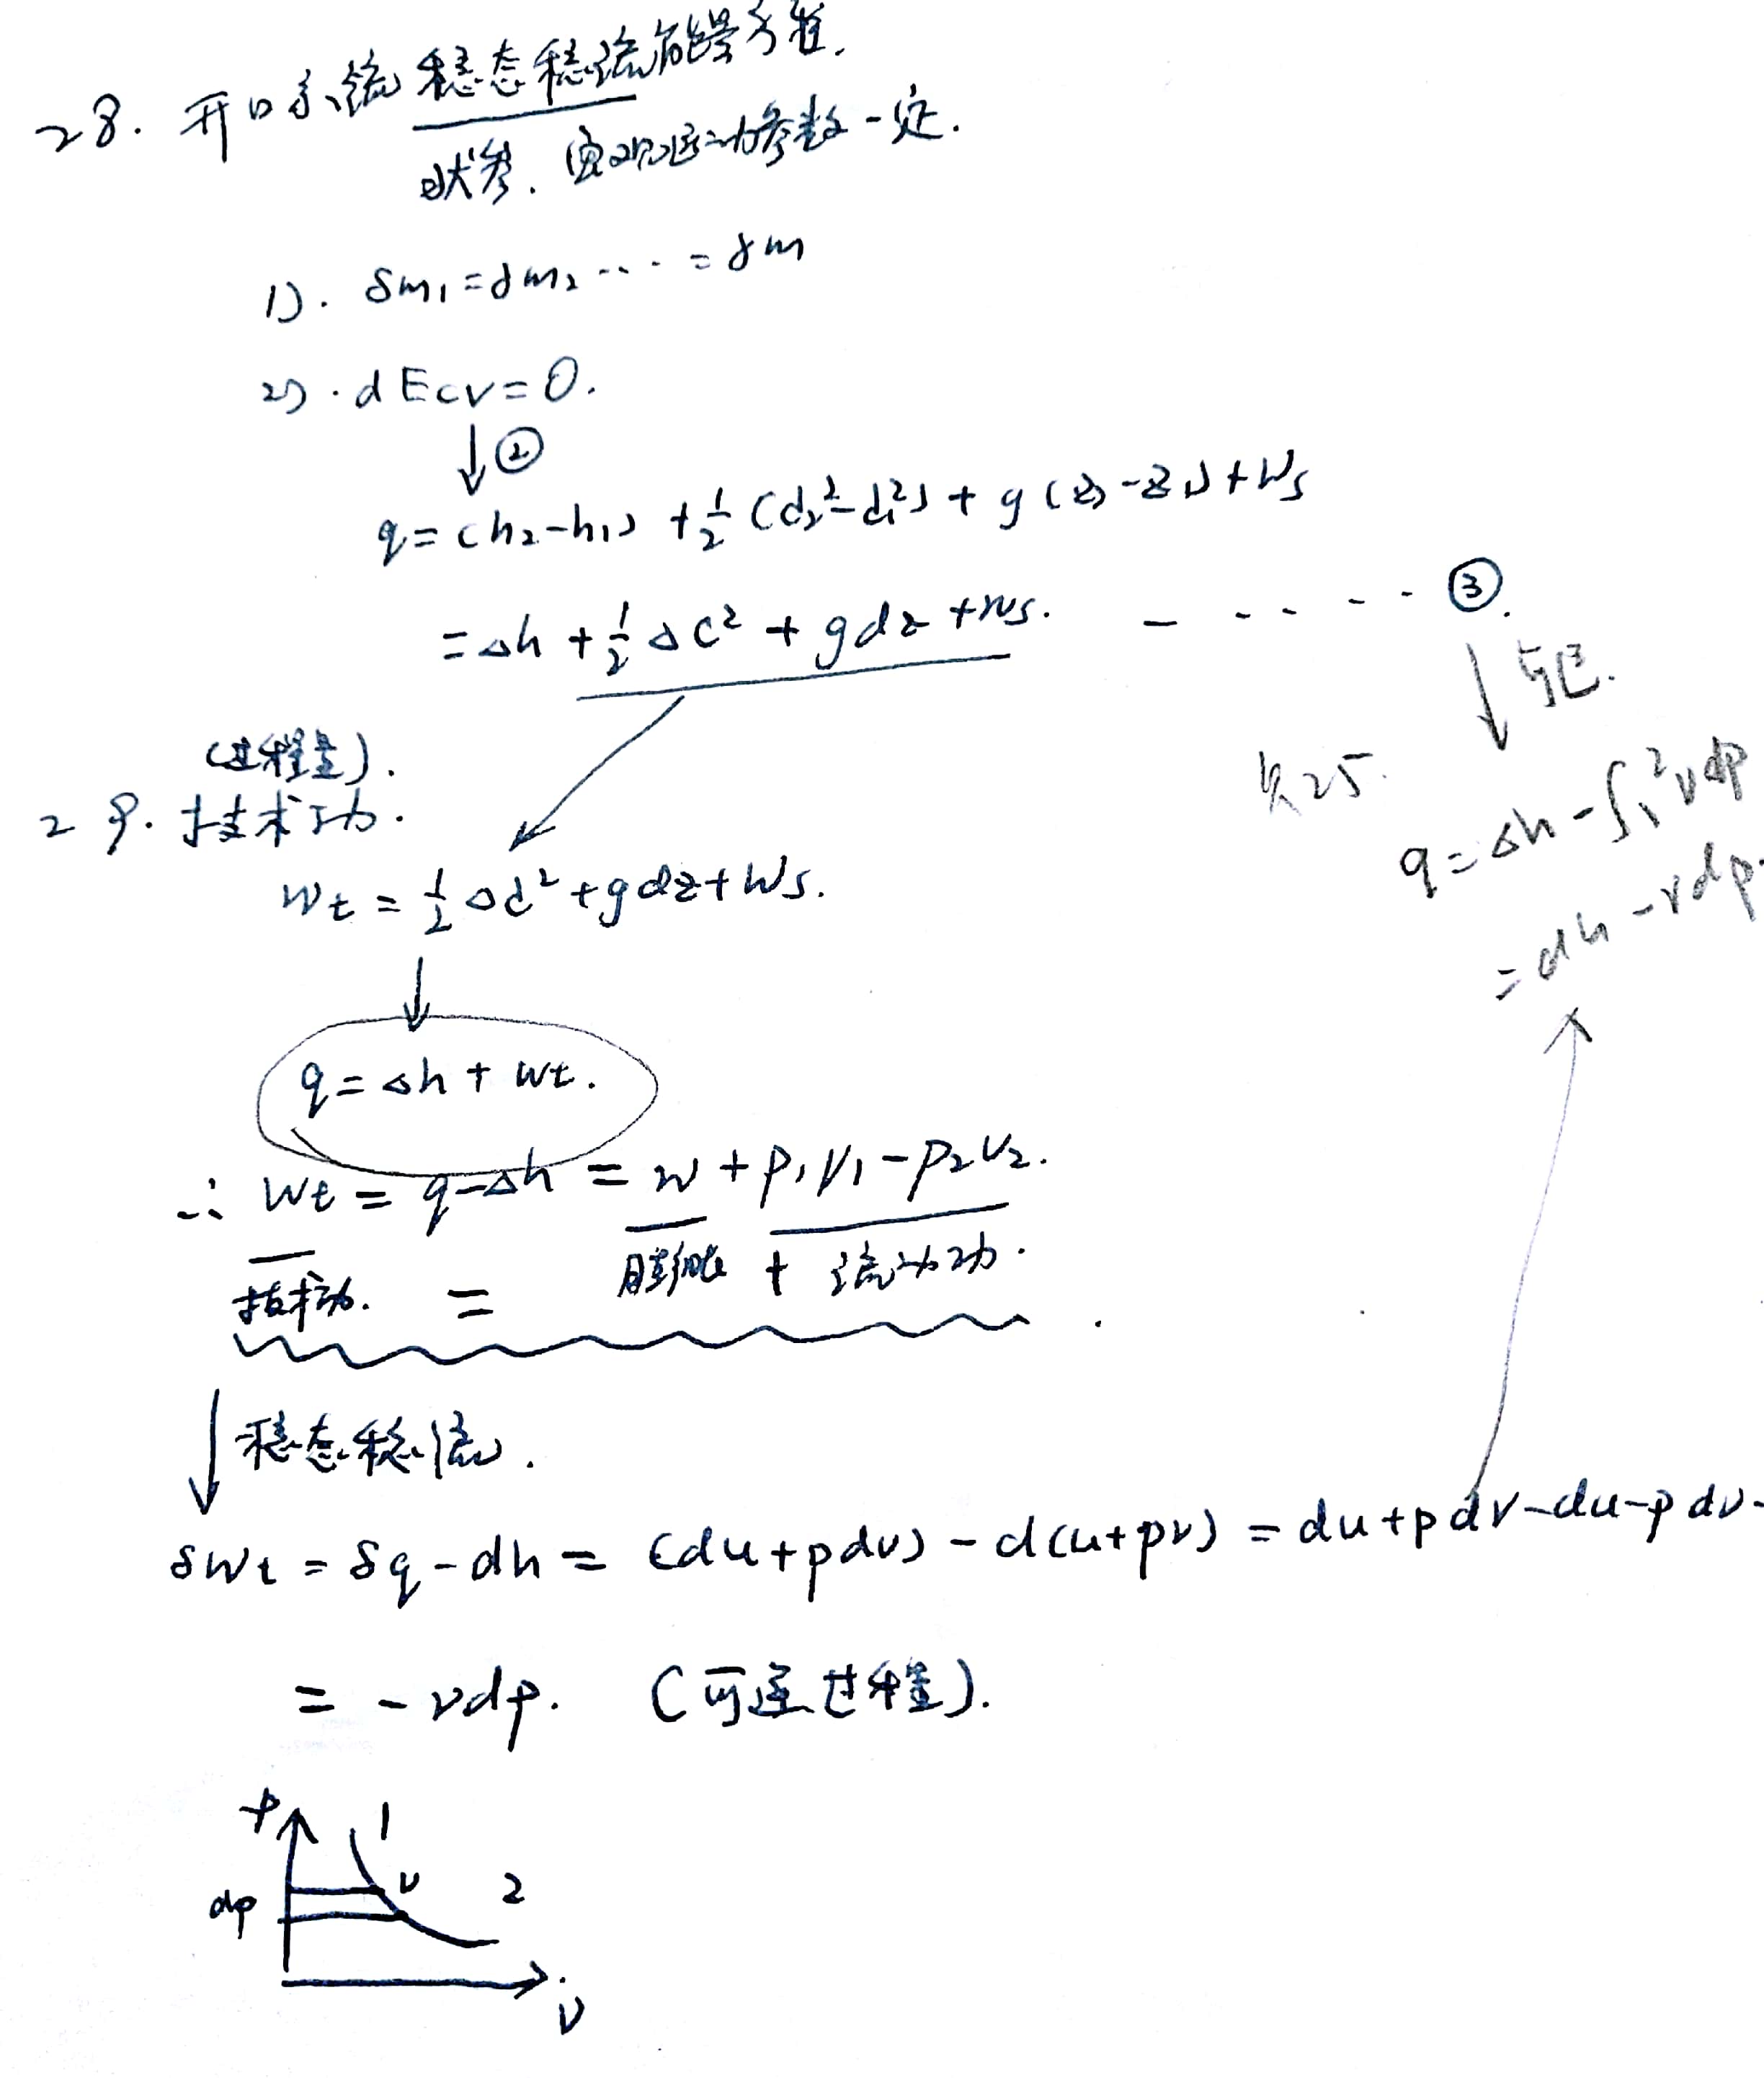 28. 开口系统稳态稳流能量方程.
状参. 宏观运动参数一定.
1). δm₁=δm₂ ···· = δm
2). dEcv=0.
↓②
q=(h₂-h₁)+½(c₂²-c₁²)+g(z₂-z₁)+Ws
=Δh+½Δc²+gdz+Ws. - - - - - ③.
↓ 可逆.
q=Δh-∫₁²vdp
=dh-vdp.
(过程量).
29. 技术功.
Wt=½Δc²+gdz+Ws.
↓
q=Δh+Wt.
∴ Wt=q-Δh=w+p₁v₁-p₂v₂.
技术功. = 膨胀 + 流动功.
↓稳态稳流.
δWt=δq-dh=(du+pdv)-d(u+pv)=du+pdv-du-pdv-
=-vdp. (可逆过程).
p 1
dp v 2
v